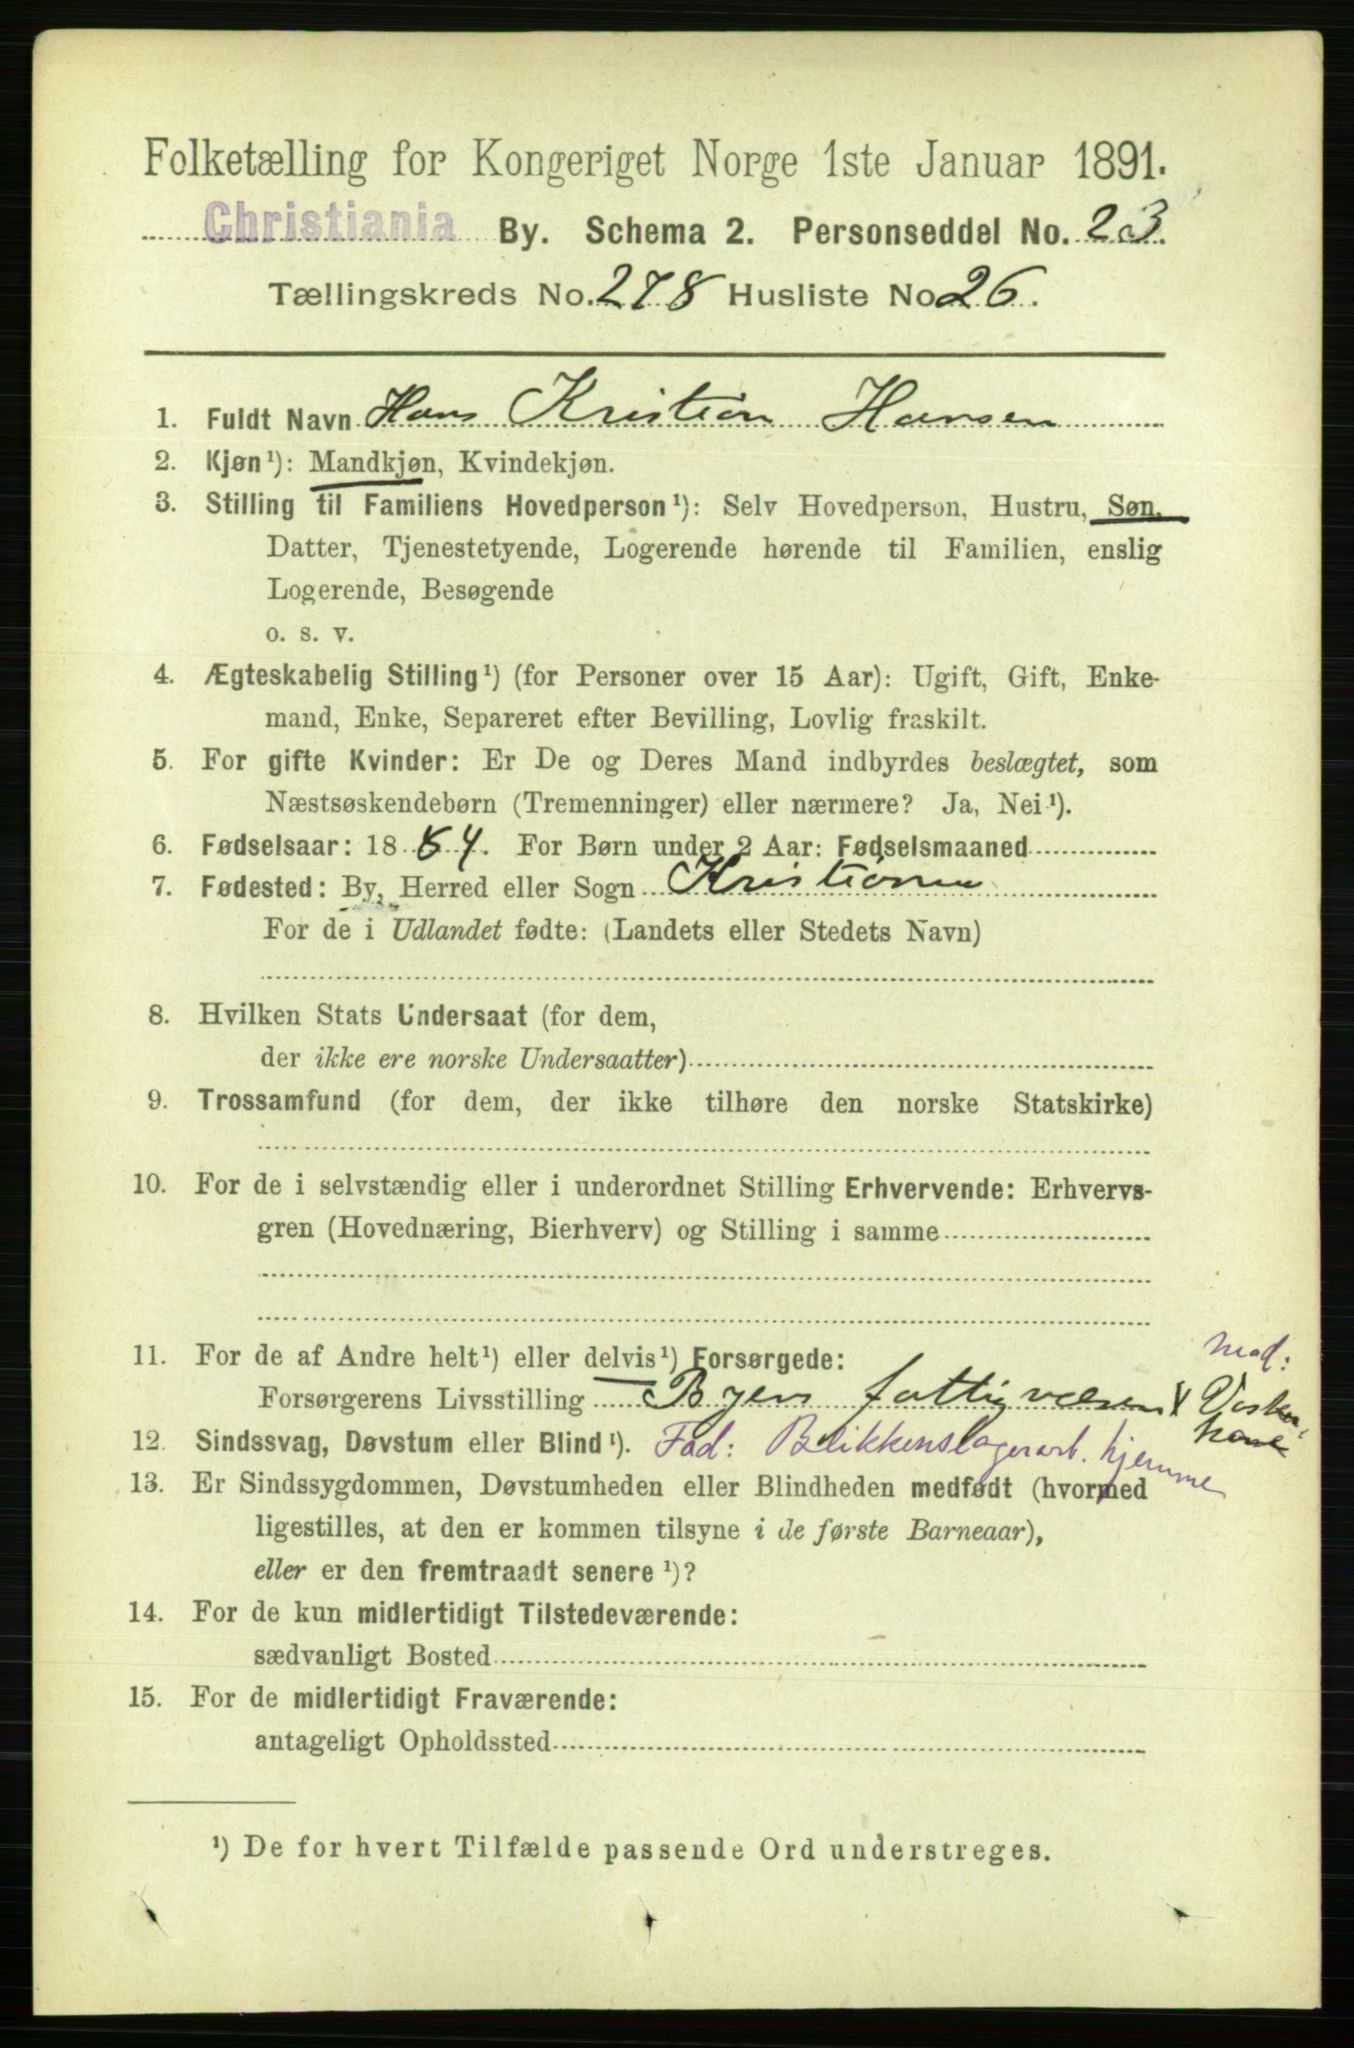 Folketælling for Kongeriget Norge 1ste Januar 1891.
Christiania By. Schema 2. Personseddel No. 23.
Tællingskreds No. 278 Husliste No. 26.
1. Fuldt Navn Hans Kristian Hansen
2. Kjøn¹): Mandkjøn, Kvindekjøn.
3. Stilling til Familiens Hovedperson¹): Selv Hovedperson, Hustru, Søn,
Datter, Tjenestetyende, Logerende hørende til Familien, enslig
Logerende, Besøgende
o. s. v.
4. Ægteskabelig Stilling¹) (for Personer over 15 Aar): Ugift, Gift, Enke-
mand, Enke, Separeret efter Bevilling, Lovlig fraskilt.
5. For gifte Kvinder: Er De og Deres Mand indbyrdes beslægtet, som
Næstsøskendebørn (Tremenninger) eller nærmere? Ja, Nei¹).
6. Fødselsaar: 1884. For Børn under 2 Aar: Fødselsmaaned
7. Fødested: By, Herred eller Sogn Kristiania
For de i Udlandet fødte: (Landets eller Stedets Navn)
8. Hvilken Stats Undersaat (for dem,
der ikke ere norske Undersaatter)
9. Trossamfund (for dem, der ikke tilhøre den norske Statskirke)
10. For de i selvstændig eller i underordnet Stilling Erhvervende: Erhvervs-
gren (Hovednæring, Bierhverv) og Stilling i samme
11. For de af Andre helt¹) eller delvis¹) Forsørgede:
Mod:
Forsørgerens Livsstilling Byens fattigvæsen Vasker-
kone
12. Sindssvag, Døvstum eller Blind¹). Fad: Blikkenslagerarb. hjemme
13. Er Sindssygdommen, Døvstumheden eller Blindheden medfødt (hvormed
ligestilles, at den er kommen tilsyne i de første Barneaar),
eller er den fremtraadt senere¹)?
14. For de kun midlertidigt Tilstedeværende:
sædvanligt Bosted
15. For de midlertidigt Fraværende:
antageligt Opholdssted
¹) De for hvert Tilfælde passende Ord understreges.